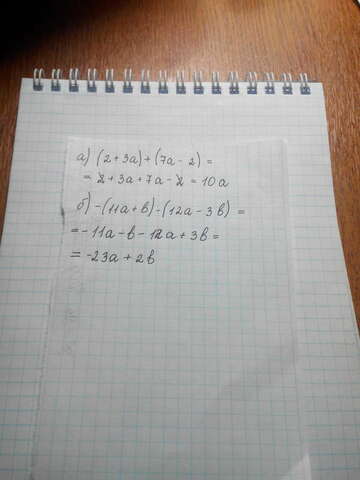 а) (2+3a)+(7a-2)=
=2+3a+7a-2=10a
б) -(11a+b)-(12a-3b)=
=-11a-b-12a+3b=
=-23a+2b